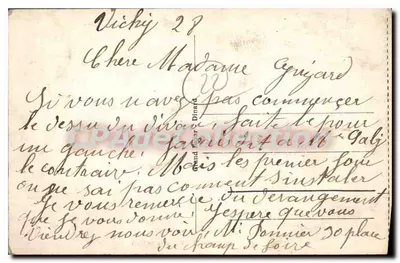 Vichy 28
Chere Madame Gregard
Si vous n'avez pas commencer
le dessu du divan faite le pour
un gauche
le contraire. Mais les premier jour
on ne sai pas comment s'instaler
Je vous remercie du derangement
que je vous donne, J'espere que vous
viendrez nous voir. M. Donnier 30 place
du champ de foire